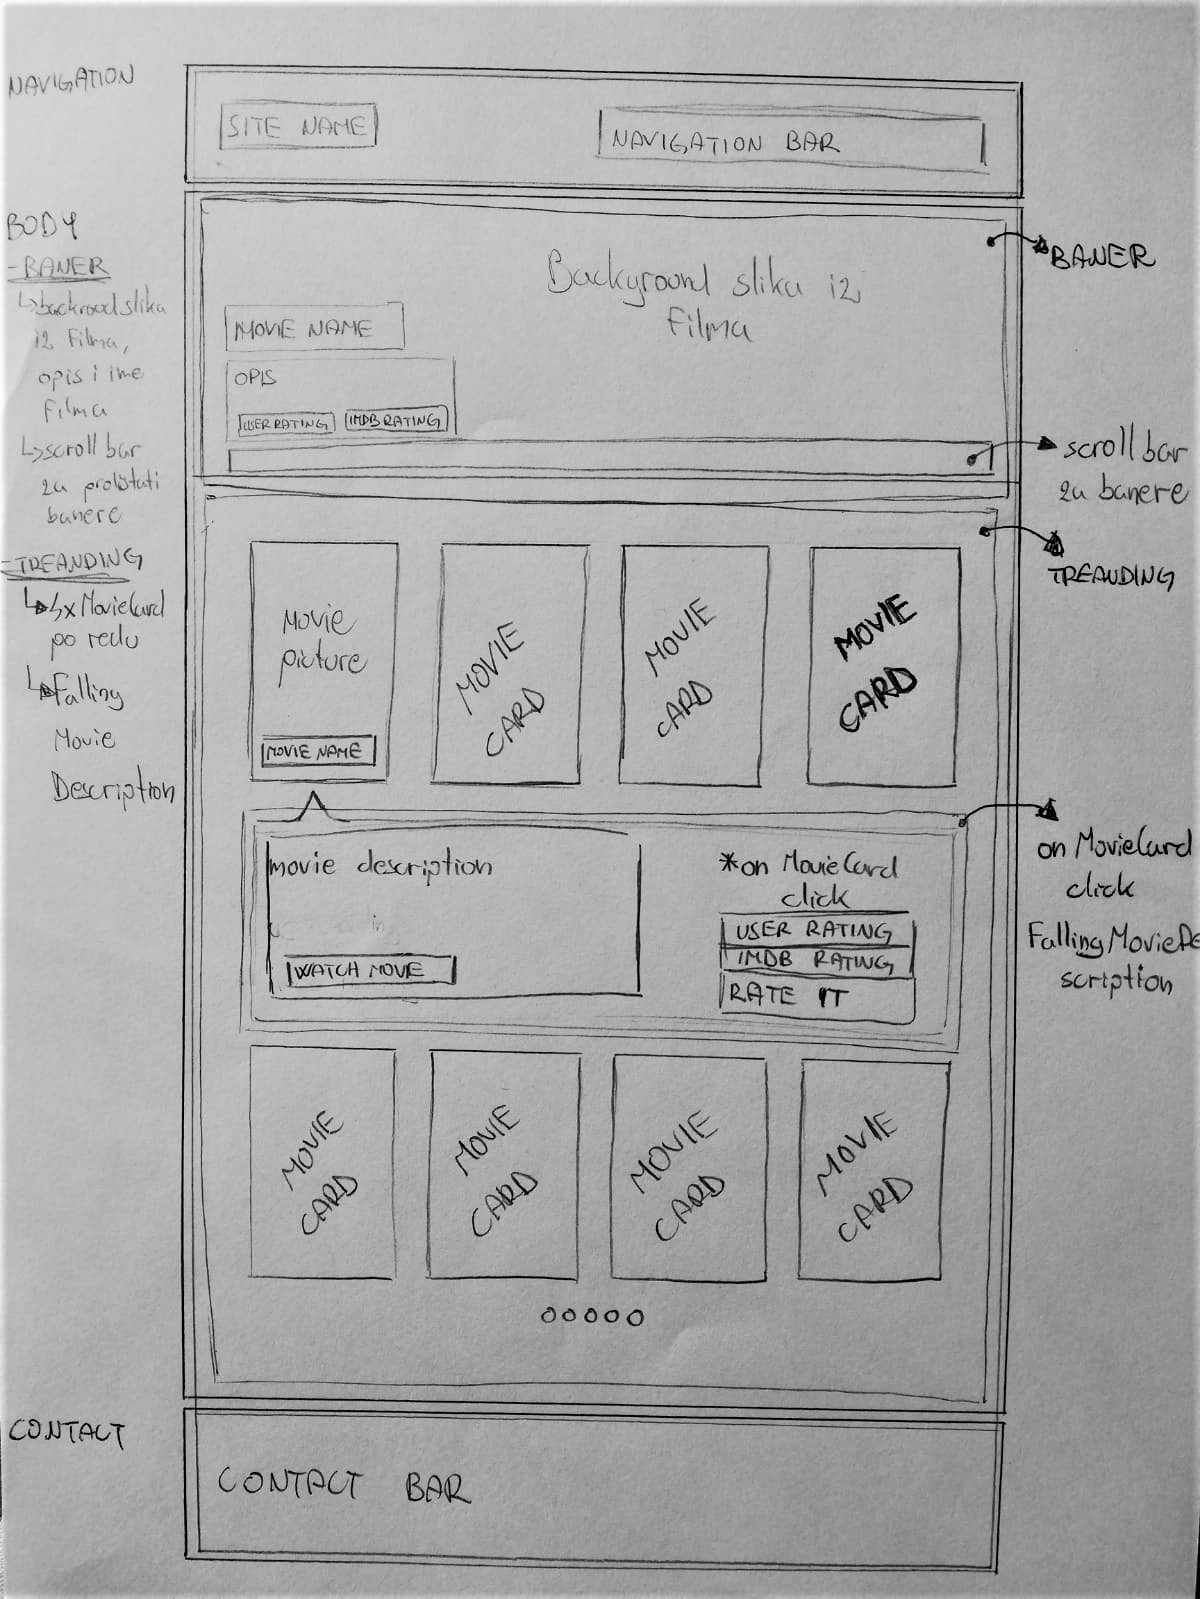 NAVIGATION
SITE NAME
NAVIGATION BAR
BODY
-BANER
↳backroud slika
iz filma,
opis i ime
filma
↳scroll bar
za prolistati
banere
-TREANDING
↳4xMovieCard
po redu
↳Falling
Movie
Description
Background slika iz
filma
MOVIE NAME
OPIS
USER RATING
IMDB RATING
BANER
scroll bar
za banere
TREANDING
Movie
picture
MOVIE NAME
MOVIE
CARD
MOVIE
CARD
MOVIE
CARD
movie description
WATCH MOVIE
*on MovieCard
click
USER RATING
IMDB RATING
RATE IT
on MovieCard
click
FallingMovieDe
scription
MOVIE
CARD
MOVIE
CARD
MOVIE
CARD
MOVIE
CARD
CONTACT
CONTACT BAR